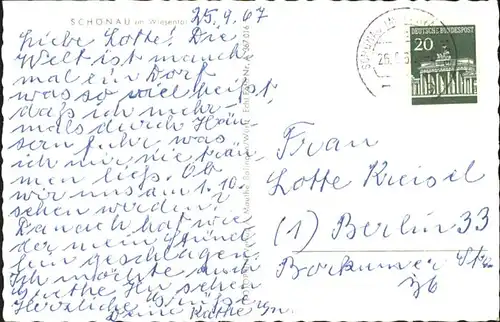 SCHÖNAU im Wiesental
25.9.67
Liebe Lotte! Die
Welt ist manch
mal ein Dorf
was so viel heißt,
daß ich mehr-
mals durch Häu-
sern fuhr, was
ich mir nie träu-
men ließ. Ob
wir uns am 1.10.
sehen werden?
Danach hat wie
der mein Stünd
lein geschlagen.
Ich möchte auch
sehen
Herzliche Grüße
Deine Käthe
DEUTSCHE BUNDESPOST
20
Frau
Lotte Kreisel
(1) Berlin 33
Borkumer Str.